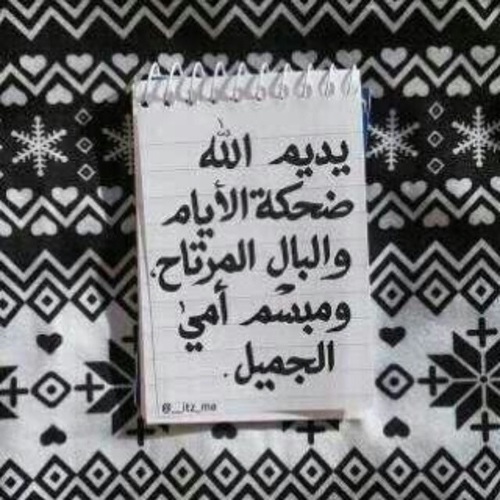 يديم الله
ضحكة الأيام
والبال المرتاح،
ومبسم أمي
الجميل.
@__itz_me